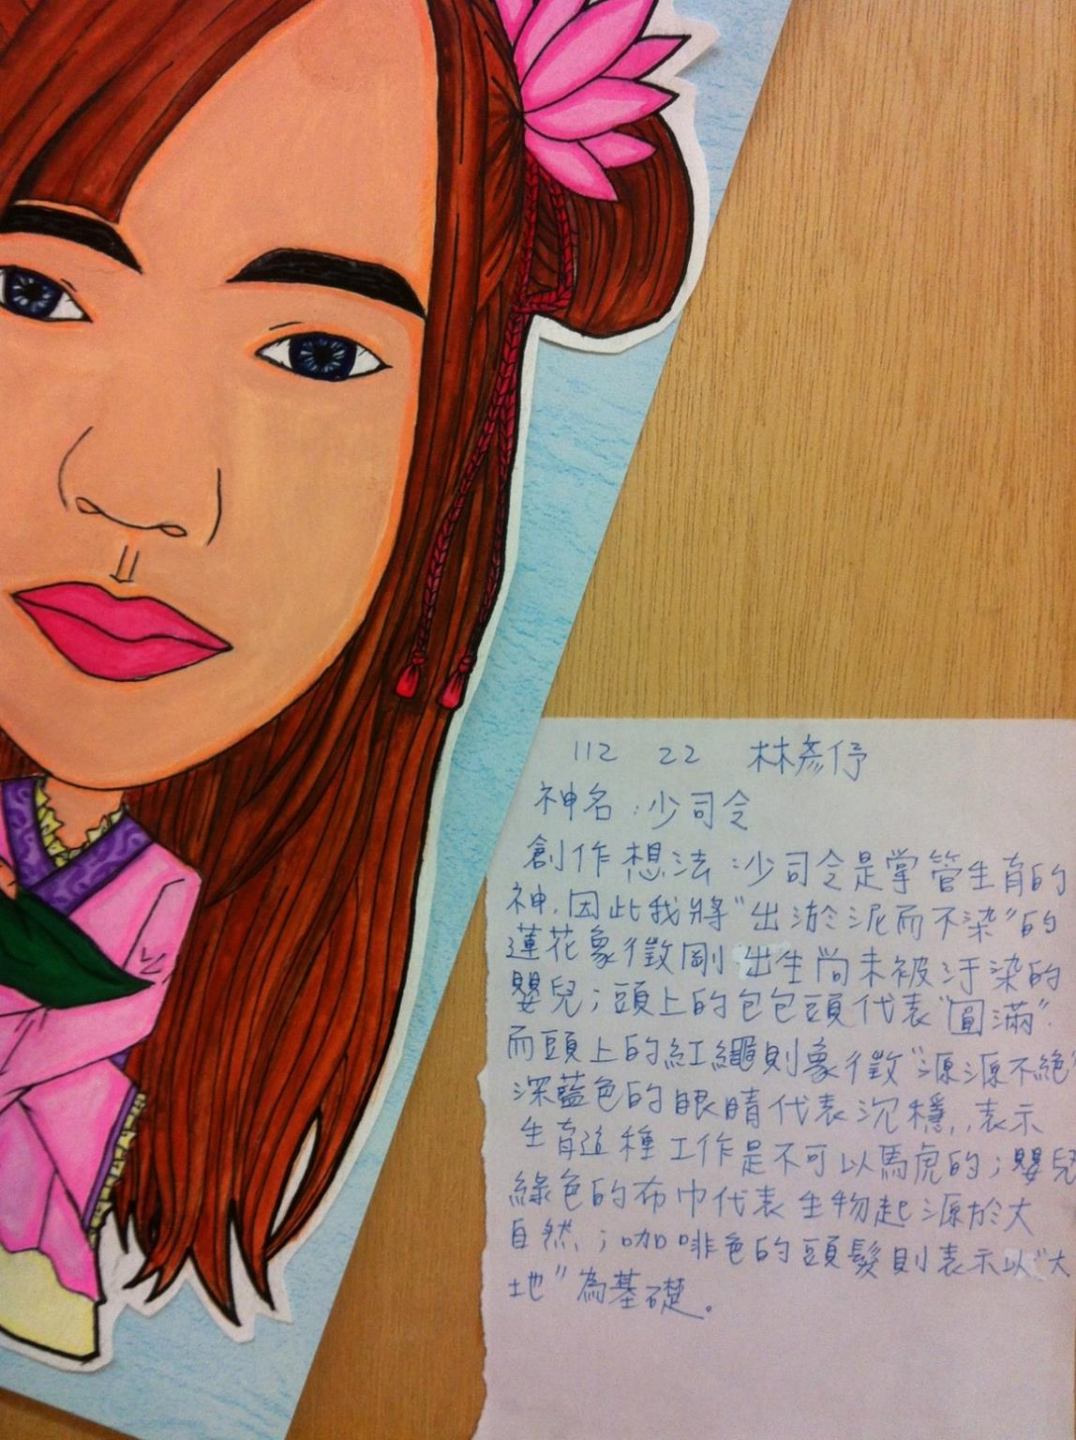 112 22 林彥伃
神名:少司令
創作想法:少司令是掌管生育的
神,因此我將"出淤泥而不染"的
蓮花象徵剛出生尚未被汙染的
嬰兒;頭上的包包頭代表"圓滿".
而頭上的紅繩則象徵"源源不絕"
深藍色的眼睛代表沉穩,,表示
生育這種工作是不可以馬虎的;嬰兒
綠色的布巾代表生物起源於大
自然,;咖啡色的頭髮則表示以"大
地"為基礎。